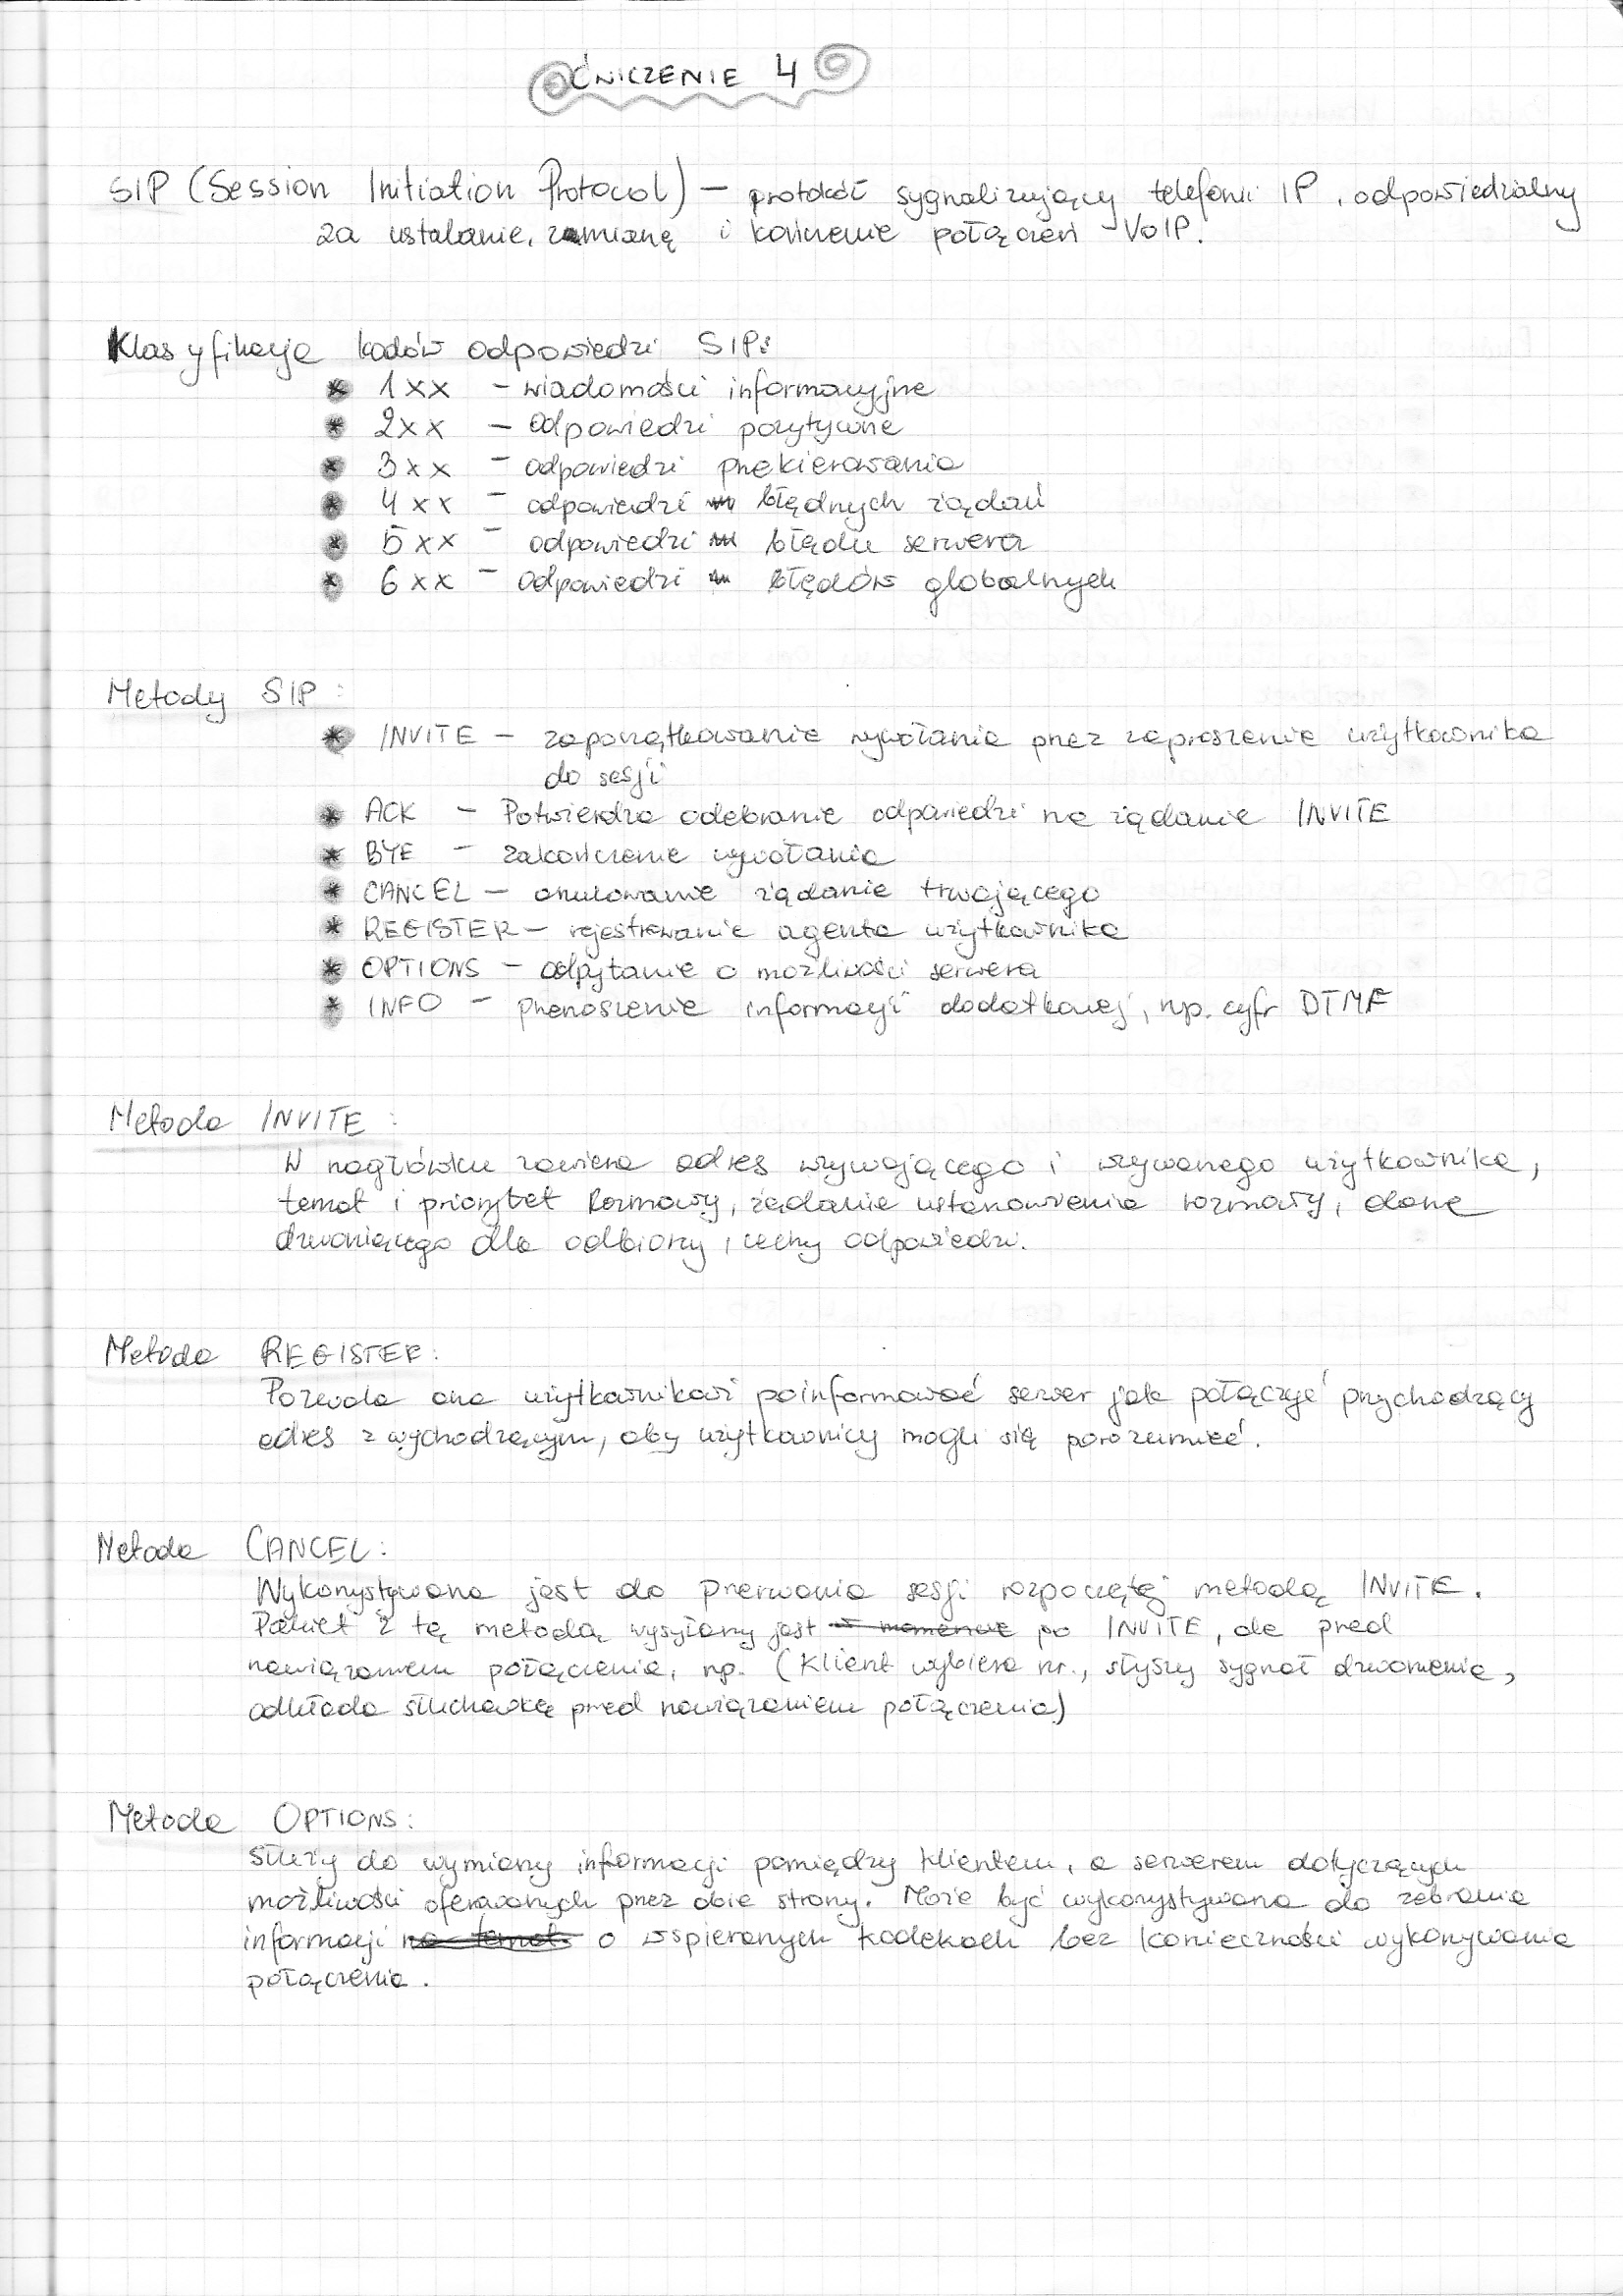 ĆWICZENIE 4
SIP (Session Initiation Protocol) – protokół sygnalizujący telefonii IP, odpowiedzialny
za ustalanie, zamianę i kończenie połączeń VoIP.
Klasyfikacja kodów odpowiedzi SIP:
* 1xx – wiadomości informacyjne
* 2xx – odpowiedzi pozytywne
* 3xx – odpowiedzi przekierowania
* 4xx – odpowiedzi błędnych żądań
* 5xx – odpowiedzi błędu serwera
* 6xx – odpowiedzi błędów globalnych
Metody SIP:
* INVITE – zapoczątkowanie wywołania przez zaproszenie użytkownika
do sesji
* ACK – Potwierdza odebranie odpowiedzi na żądanie INVITE
* BYE – zakończenie wywołania
* CANCEL – anulowanie żądanie trwającego
* REGISTER – rejestrowanie agenta użytkownika
* OPTIONS – odpytanie o możliwości serwera
* INFO – przenoszenie informacji dodatkowej, np. cyfr DTMF
Metoda INVITE:
W nagłówku zawiera adres wzywającego i wzywanego użytkownika,
temat i priorytet rozmowy, żądanie ustanowienia rozmowy, dane
dzwoniącego dla odbiorcy, cechy odpowiedzi.
Metoda REGISTER:
Pozwala ona użytkownikowi poinformować serwer jak połączyć przychodzący
adres z wychodzącym, aby użytkownicy mogli się porozumieć.
Metoda CANCEL:
Wykorzystywana jest do przerwania sesji rozpoczętej metodą INVITE.
Pakiet z tą metodą wysyłany jest po INVITE, ale przed
nawiązaniem połączenia, np. (klient wybiera nr., słyszy sygnał dzwonienia,
odkłada słuchawkę przed nawiązaniem połączenia)
Metoda OPTIONS:
Służy do wymiany informacji pomiędzy klientem, a serwerem dotyczących
możliwości oferowanych przez obie strony. Może być wykorzystywana do zebrania
informacji na temat o wspieranych kodekach bez konieczności wykonywania
połączenia.